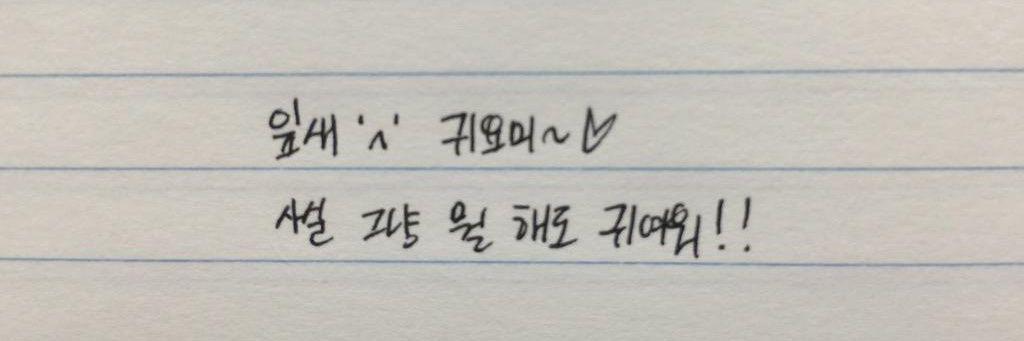 잎새 '^' 귀요미~♡
사실 그냥 뭘 해도 귀여워!!